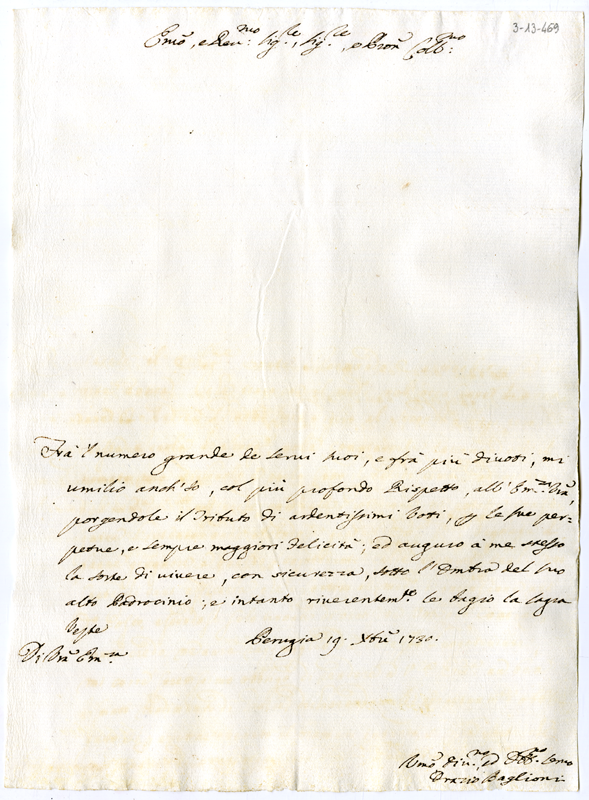 3-13-469
Emõ, e Reu:mo Sig:le, Sig:le, e Pron̄ Col:mo
Frà 'l numero grande de serui suoi, e frà più diuoti, mi
umilio anch'Io, col più profondo Rispetto, all'Em:a Vrã,
porgendole il Tributo di ardentissimi Voti, p le sue per=
petue, e sempre maggiori felicità; ed auguro à me stesso
la sorte di viuere, con sicurezza, sotto l'Ombra del suo
alto Padrocinio; e intanto riuerentem:te le bagio la sagra
Veste
Di Vrã Em:a
Perugia 19. Xbrē 1730.
Umõ diu:mo, ed Obb:mo Seruo
Orazio Baglioni